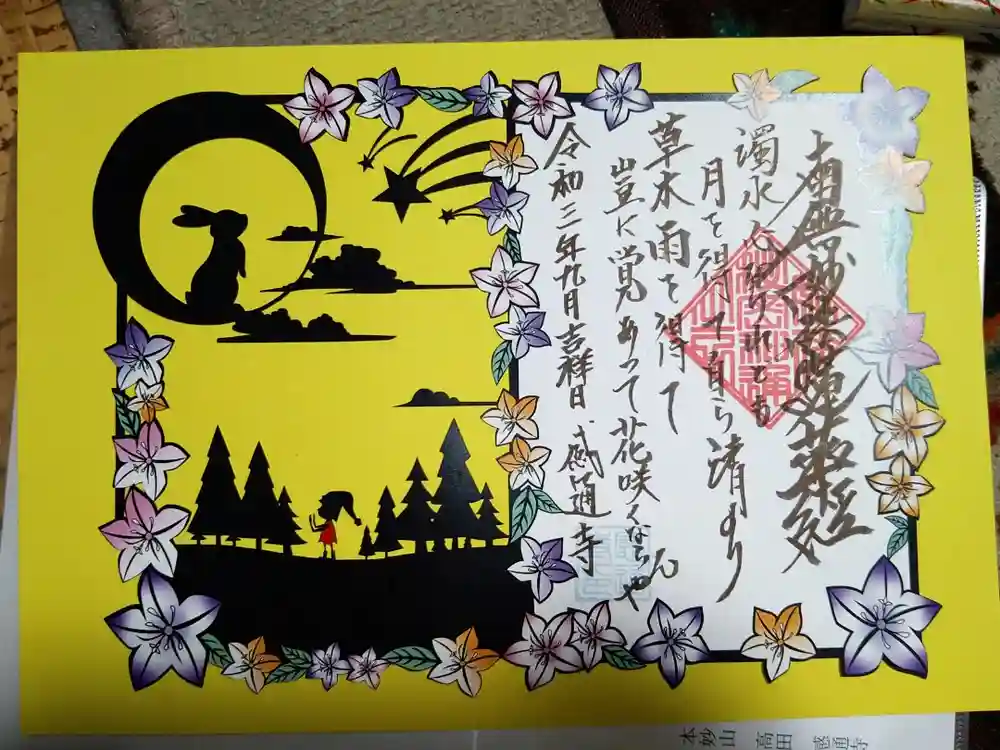 南無妙法蓮華経
濁水心無けれども
月を得て自ら清めり
草木雨を得て
豈に覚あって花咲くならんや
令和三年九月吉祥日 感通寺
本妙山 高田 感通寺